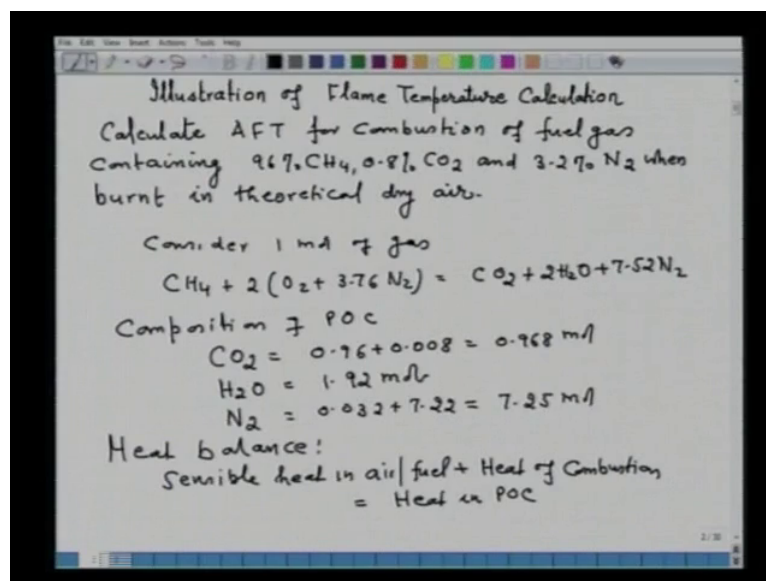 File Edit View Insert Actions Tools Help
Illustration of Flame Temperature Calculation
Calculate AFT for combustion of fuel gas
containing 96%CH4, 0.8% CO2 and 3.2% N2 when
burnt in theoretical dry air.
Consider 1 mol of gas
CH4 + 2 (O2 + 3.76 N2) = CO2 + 2H2O + 7.52N2
Composition of POC
CO2 = 0.96 + 0.008 = 0.968 mol
H2O = 1.92 mol
N2 = 0.032 + 7.22 = 7.25 mol
Heat balance:
Sensible heat in air/fuel + Heat of Combustion
= Heat in POC
2/30